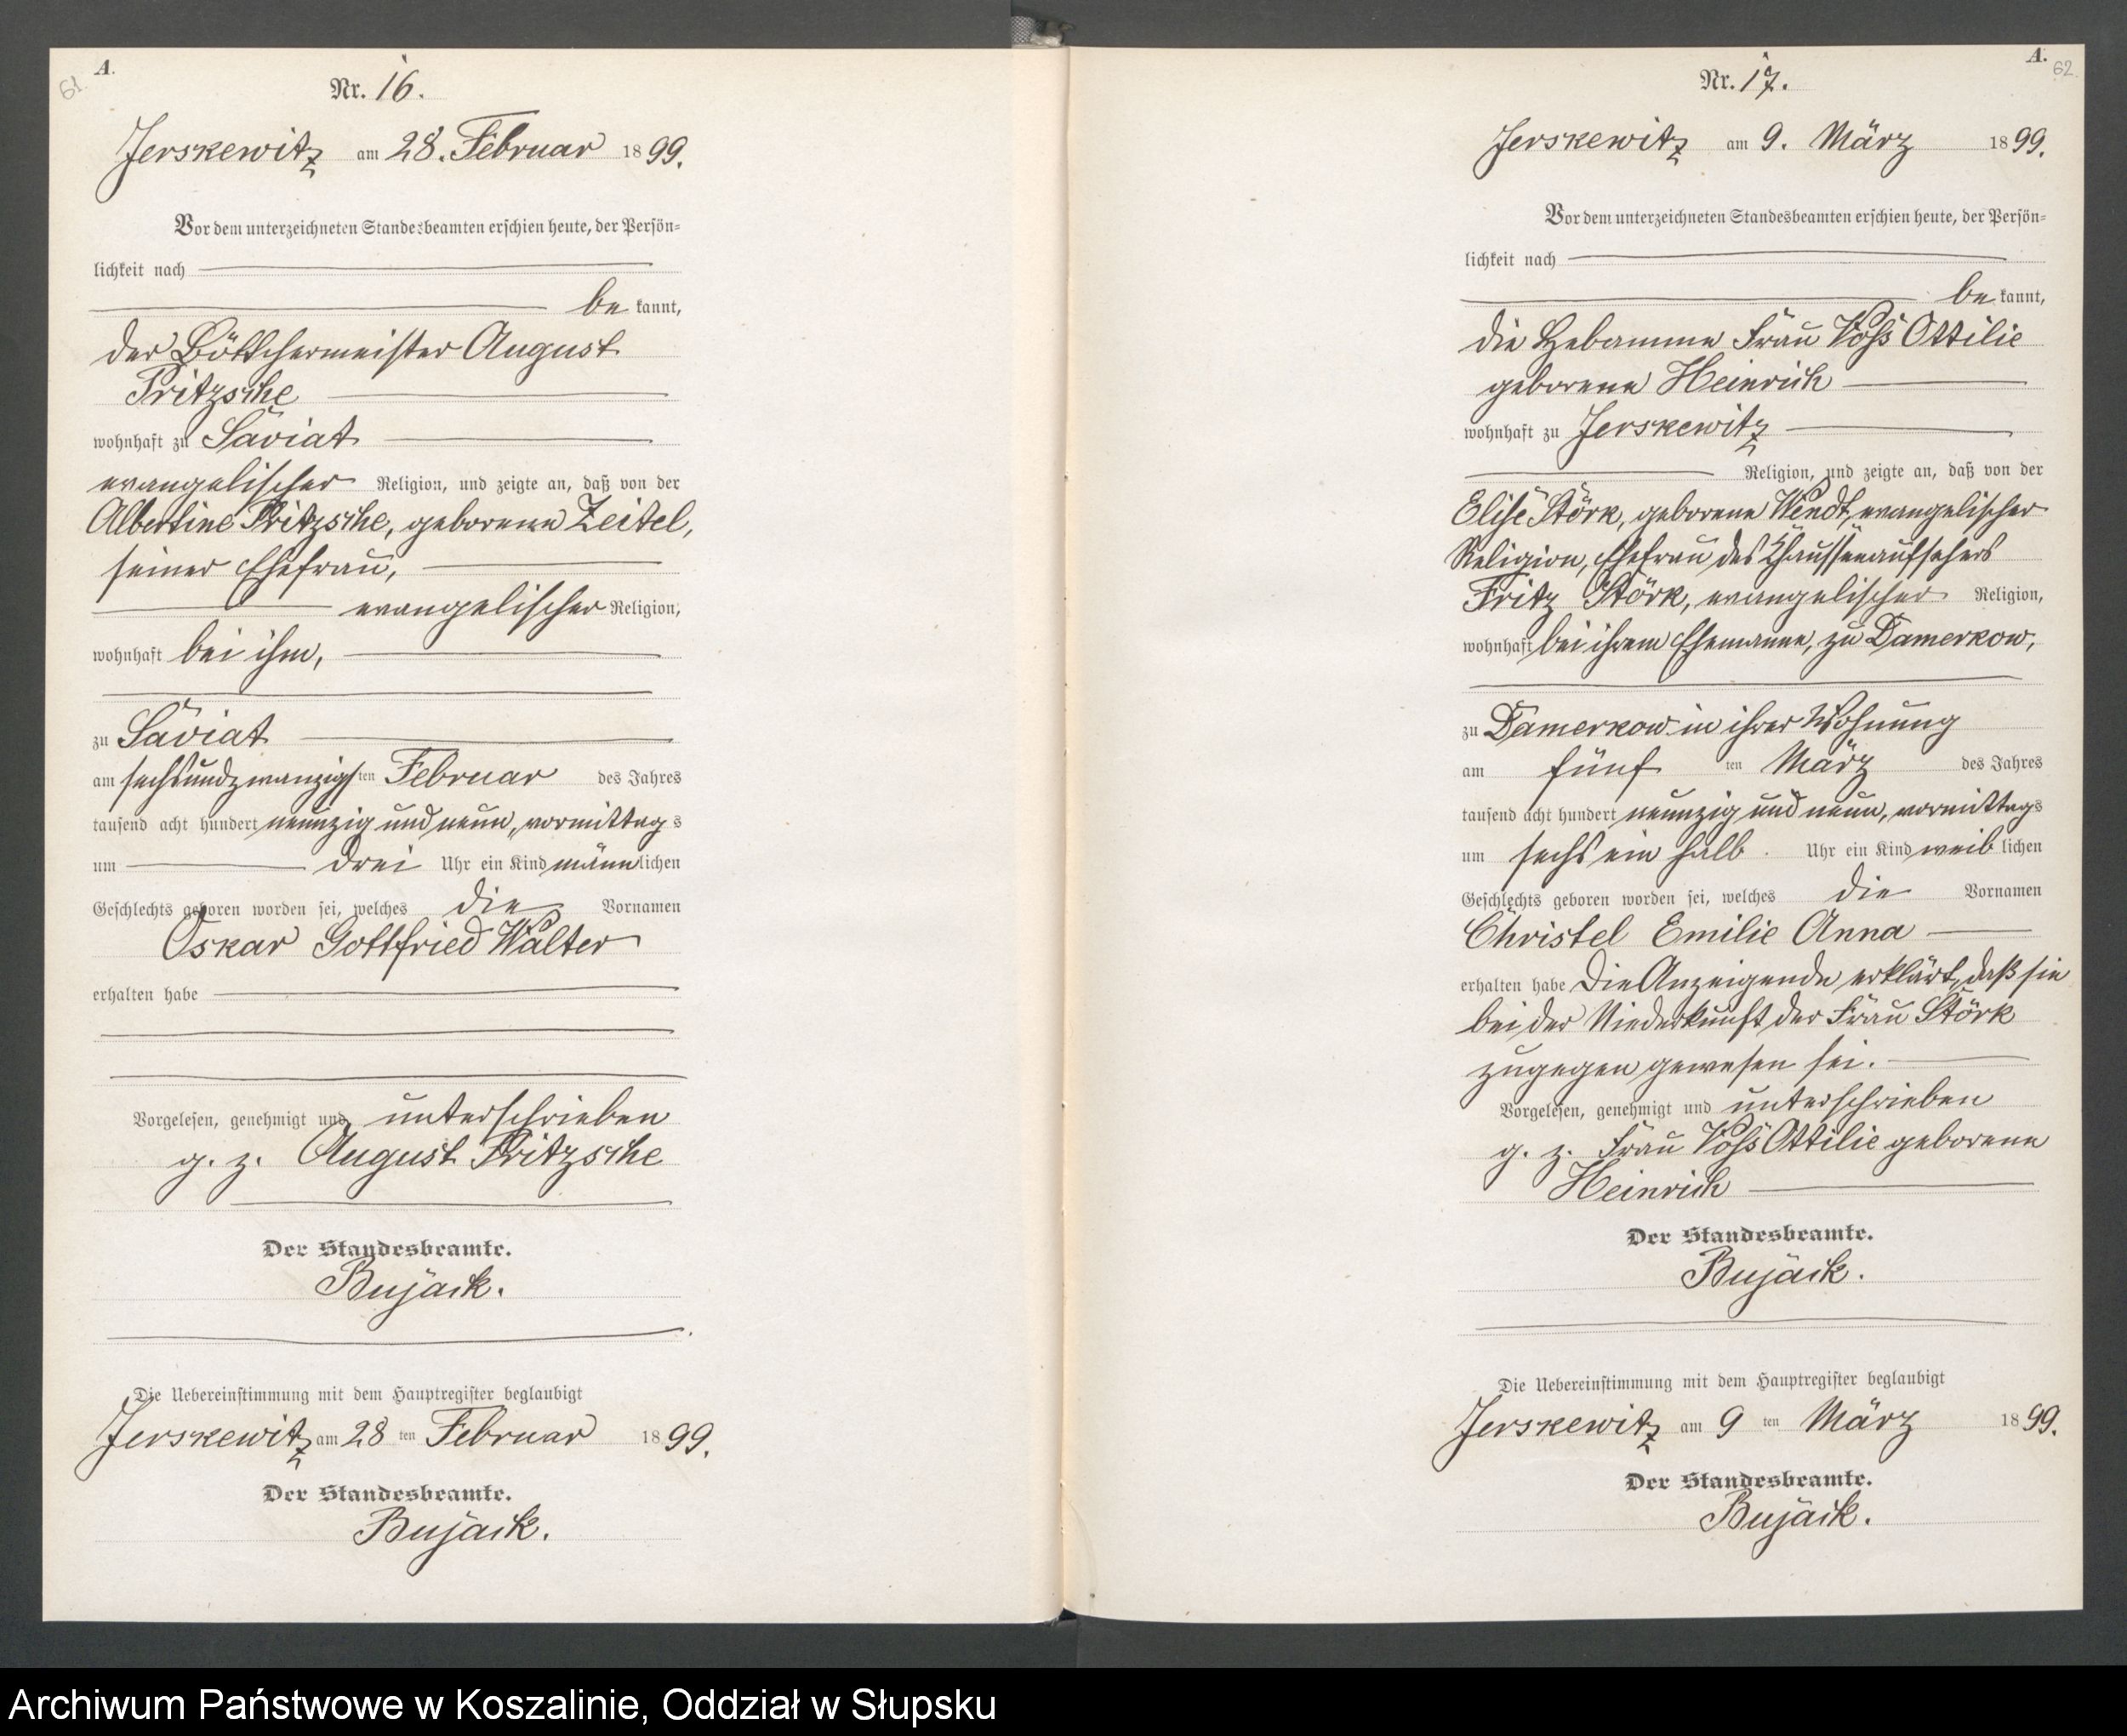 61.
A.
Nr. 16.
Jerskewitz am 28. Februar 1899.
Vor dem unterzeichneten Standesbeamten erschien heute, der Persön-
lichkeit nach
be kannt,
der Böttchermeister August
Pritzsche
wohnhaft zu Saviat
evangelischer Religion, und zeigte an, daß von der
Albertine Pritzsche, geborene Zeitel,
seiner Ehefrau,
evangelischer Religion,
wohnhaft bei ihm,
zu Saviat
am sechsundzwanzigsten Februar des Jahres
tausend acht hundert neunzig und neun, vormittags
um drei Uhr ein Kind männlichen
Geschlechts geboren worden sei, welches die Vornamen
Oskar Gottfried Walter
erhalten habe
Vorgelesen, genehmigt und unterschrieben
g. z. August Pritzsche
Der Standesbeamte.
Bujack.
Die Uebereinstimmung mit dem Hauptregister beglaubigt
Jerskewitz am 28 ten Februar 1899.
Der Standesbeamte.
Bujack.
A.
62.
Nr. 17.
Jerskewitz am 9. März 1899.
Vor dem unterzeichneten Standesbeamten erschien heute, der Persön-
lichkeit nach
be kannt,
die Hebamme Frau Voß Ottilie
geborene Heinrich
wohnhaft zu Jerskewitz
Religion, und zeigte an, daß von der
Elise Störk, geborene Wendt, evangelischer
Religion, Ehefrau des Chausseeaufsehers
Fritz Störk, evangelischer Religion,
wohnhaft bei ihrem Ehemanne, zu Damerkow,
zu Damerkow in ihrer Wohnung
am fünf ten März des Jahres
tausend acht hundert neunzig und neun, vormittags
um sechs ein halb Uhr ein Kind weiblichen
Geschlechts geboren worden sei, welches die Vornamen
Christel Emilie Anna
erhalten habe Die Anzeigende erklärt, daß sie
bei der Niederkunft der Frau Störk
zugegen gewesen sei.
Vorgelesen, genehmigt und unterschrieben
g. z. Frau Voß Ottilie geborene
Heinrich
Der Standesbeamte.
Bujack.
Die Uebereinstimmung mit dem Hauptregister beglaubigt
Jerskewitz am 9 ten März 1899.
Der Standesbeamte.
Bujack.
Archiwum Państwowe w Koszalinie, Oddział w Słupsku